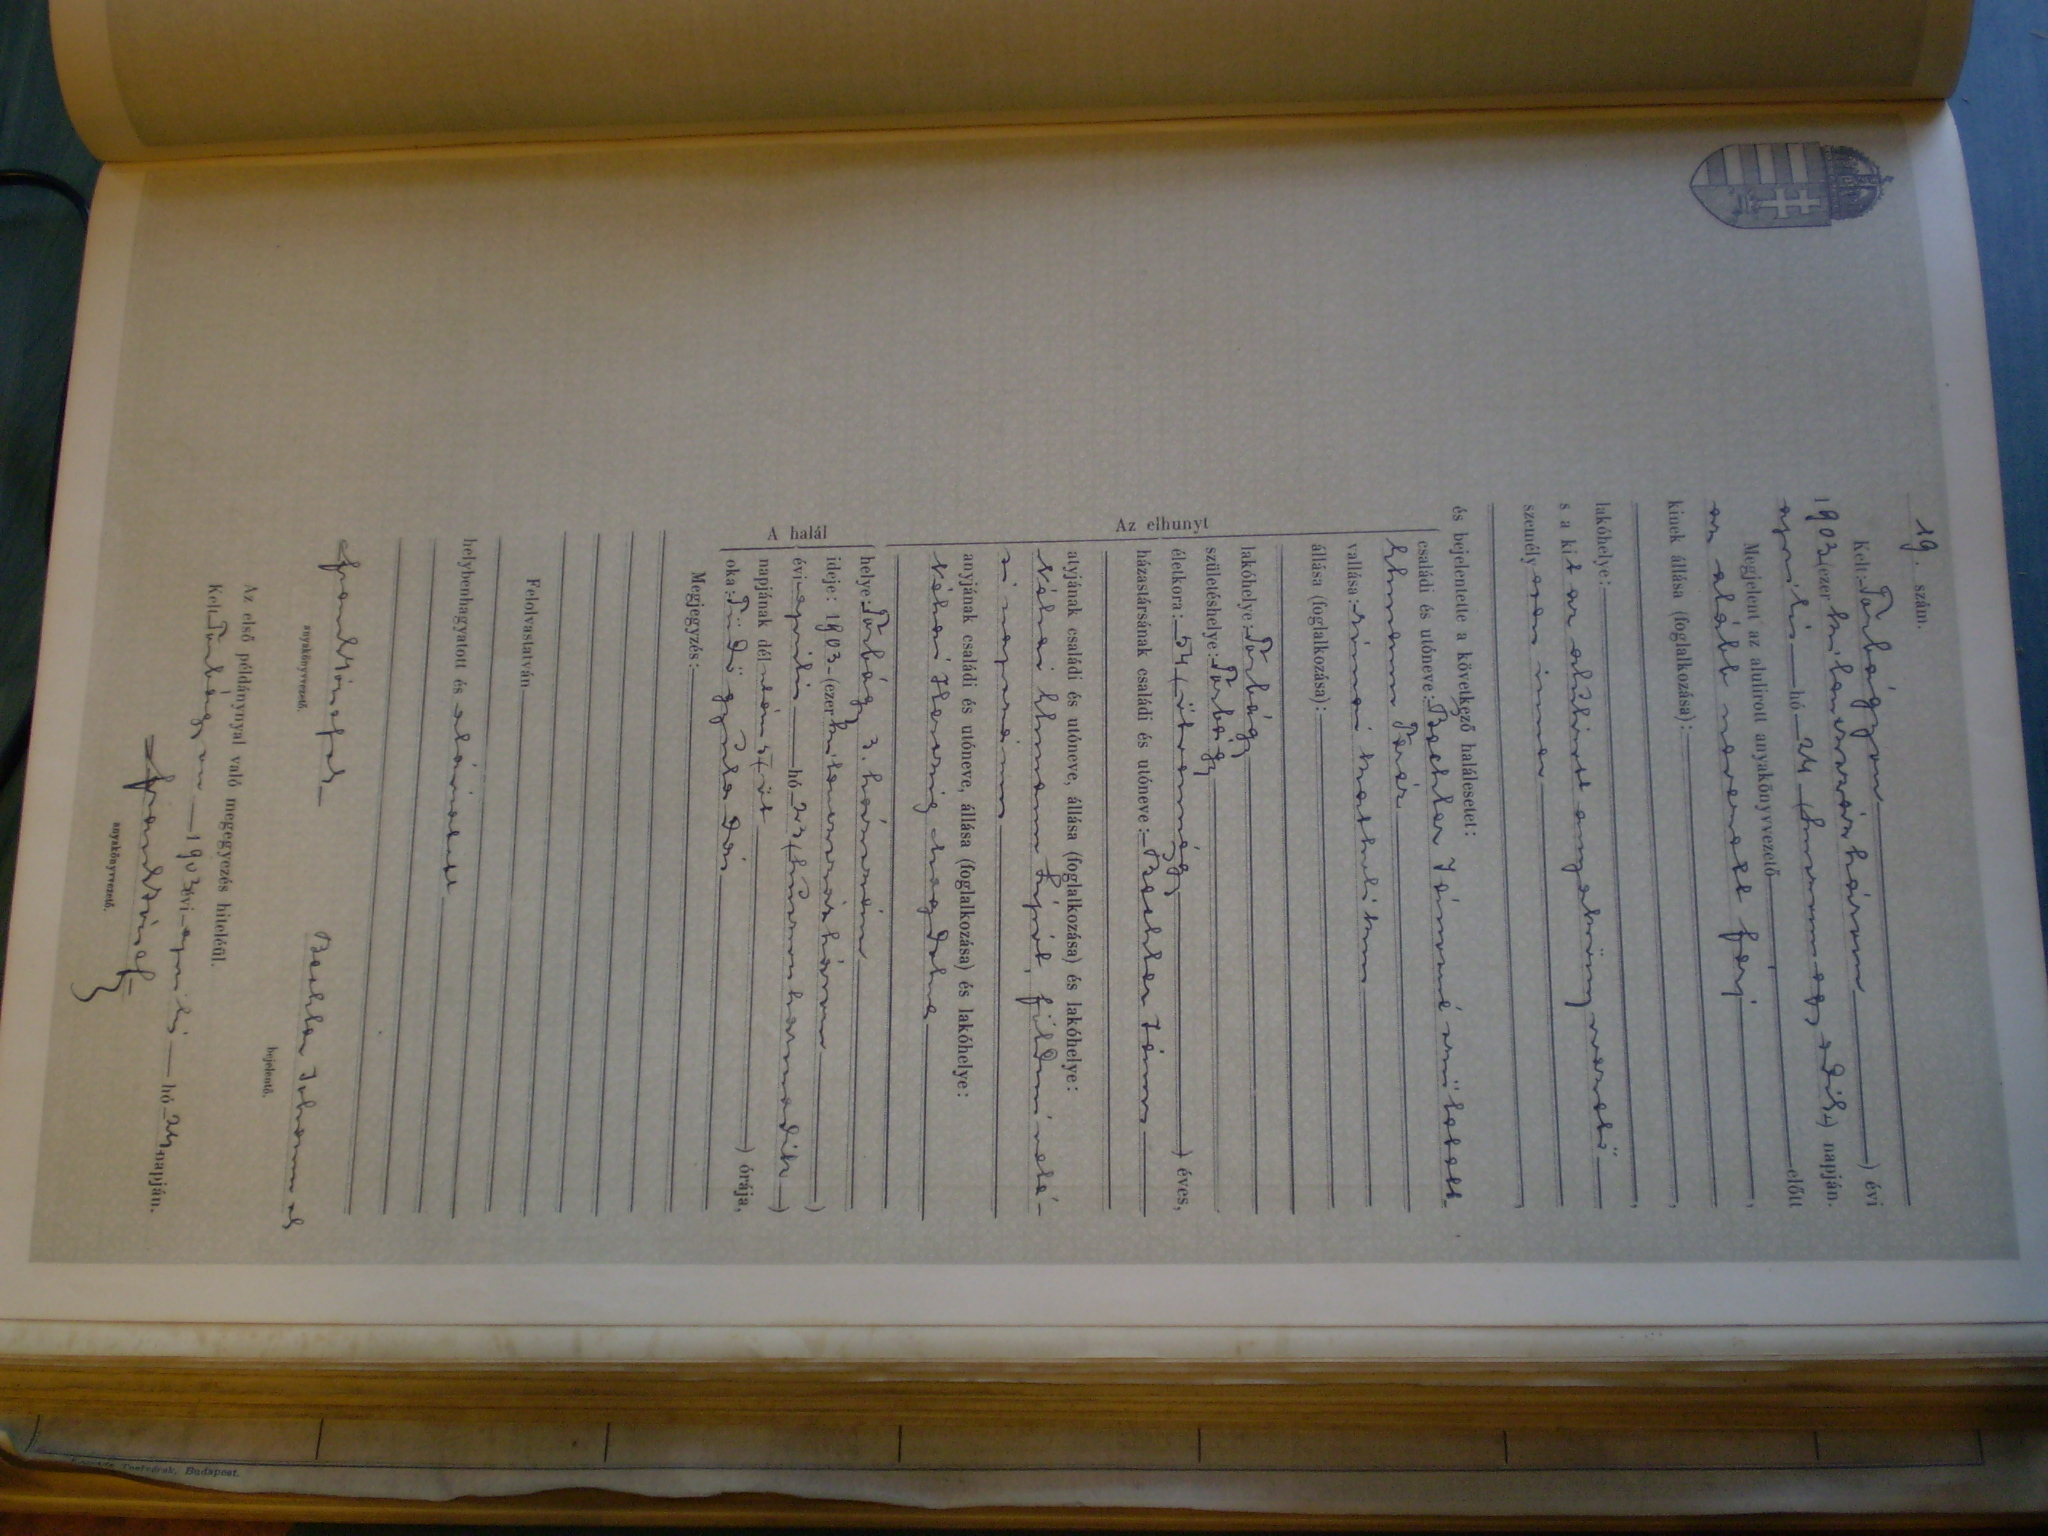 19. szám.
Kelt: Torbágyon ) évi
1903 (ezer kilenczszázhárom
április hó 24 (huszonnegyedik) napján.
Megjelent az alulirott anyakönyvvezető előtt
az alább nevezett férj,
kinek állása (foglalkozása):
lakóhelye:
s a kit az alúlirott anyakönyvvezető
személyesen ismer
és bejelentette a következő halálesetet:
Az elhunyt
családi és utóneve: Jánosné született
Teréz
vallása: római katholikus
állása (foglalkozása):
lakóhelye: Torbágy
születéshelye: Torbágy
életkora: 54 (ötvennégy ) éves,
házastársának családi és utóneve: János
atyjának családi és utóneve, állása (foglalkozása) és lakóhelye:
Néhai
anyjának családi és utóneve, állása (foglalkozása) és lakóhelye:
Néhai Magdolna
A halál
helye: Torbágy 3. házszám
ideje: 1903. (ezer kilenczszázhárom )
évi április hó 23 (huszonharmadik )
napjának dél után 5 (öt ) órája,
oka: Tüdőgyuladás
Megjegyzés:
Felolvastatván
helybenhagyatott és aláíratott
anyakönyvvezető.
bejelentő.
Az első példánynyal való megegyezés hiteléül.
Kelt Torbágyon 1903 évi április hó 24 napján.
anyakönyvvezető.
Budapest.